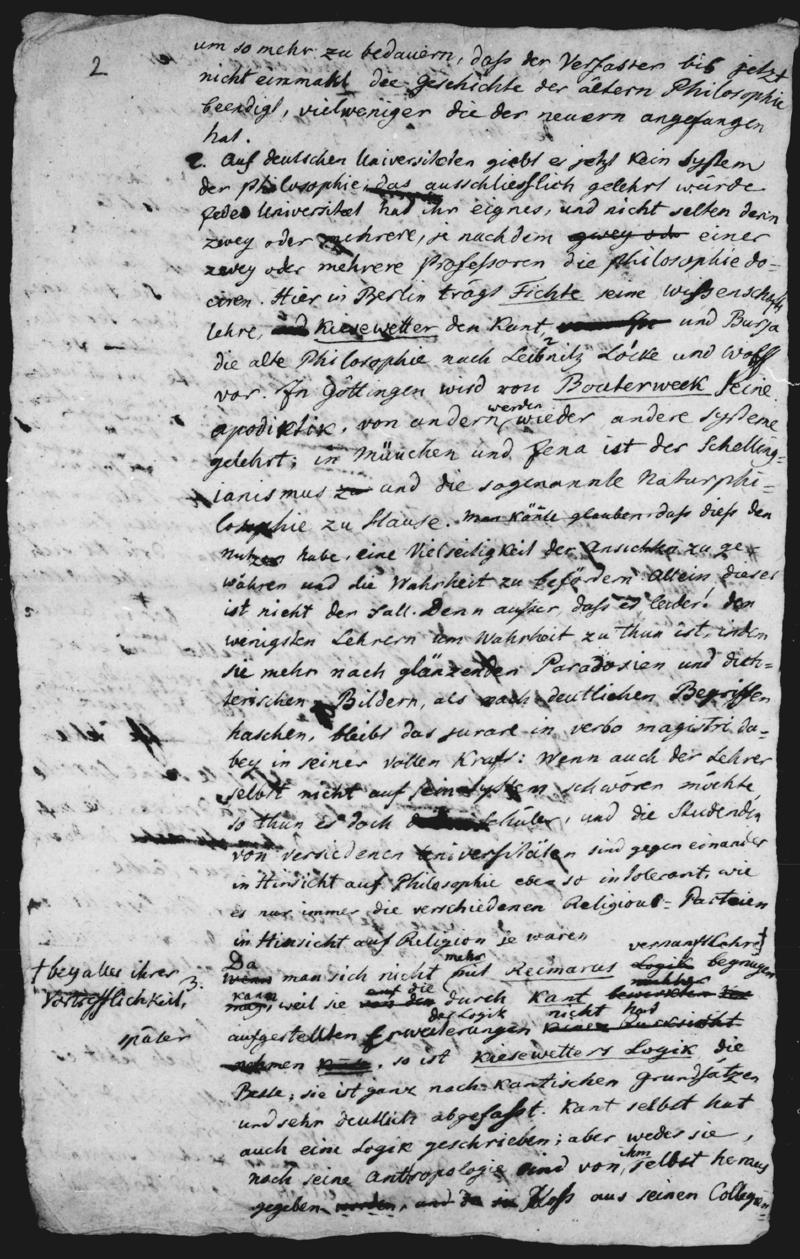 2
um so mehr zu bedauern, daß der Verfasser bis jetzt
nicht einmahl die Geschichte der ältern Philosophie
beendigt, vielweniger die der neuern angefangen
hat.
2. Auf deutschen Universitäten giebt es jetzt kein System
der Philosophie, das ausschließlich gelehrt würde
jede Universität hat ihr eignes, und nicht selten deren
zwey oder mehrere, je nachdem zwey oder einer
zwey oder mehrere Professoren die Philosophie do-
ciren. Hier in Berlin trägt Fichte seine Wissenschafts
lehre, und Kiesewetter den Kant, und Burja
die alte Philosophie nach Leibnitz Locke und Wolff
vor. In Göttingen wird von Bouterweck seine
apodiktik, von andern werden wieder andere Systeme
gelehrt; in München und Jena ist der Schelling-
ianismus zu und die sogenannte Naturphi-
losophie zu Hause. Man könte glauben, dass diess den
nutzen habe, eine Vielseitigkeit der Ansichten zu ge-
währen und die Wahrheit zu befördern. Allein dieses
ist nicht der Fall. Denn ausser, dass es leider! den
wenigsten Lehrern um Wahrheit zu thun ist, indem
sie mehr nach glänzenden Paradoxien und dich-
terischen Bildern, als nach deutlichen Begriffen
haschen, bleibt das jurare in verba magistri da-
bey in seiner vollen Kraft: Wenn auch der Lehrer
selbst nicht auf sein System schwören möchte,
so thun es doch Schüler, und die Studenden
von versiedenen Universitäten sind gegen einander
in Hinsicht auf Philosophie eben so intolerant, wie
es nur immer die verschiedenen Religions-Parteien
in Hinsicht auf Religion je waren
3. Da wenn man sich nicht mehr mit Reimarus Logik vernunftlehre † begnügen
kann mag, weil sie auf die von den durch Kant
aufgestellten Erweiterungen der Logik nicht hat keine Rücksicht
nehmen, so ist Kiesewetters Logik die
Beste; sie ist ganz nach Kantischen Grundsätzen
und sehr deutlich abgefasst. Kant selbst hat
auch eine Logik geschrieben; aber weder sie,
noch seine Anthropologie sind von ihm selbst heraus
gegeben worden, und bloß aus seinen Collegien
† bey alles ihrer
Vortrefflichkeit,
später